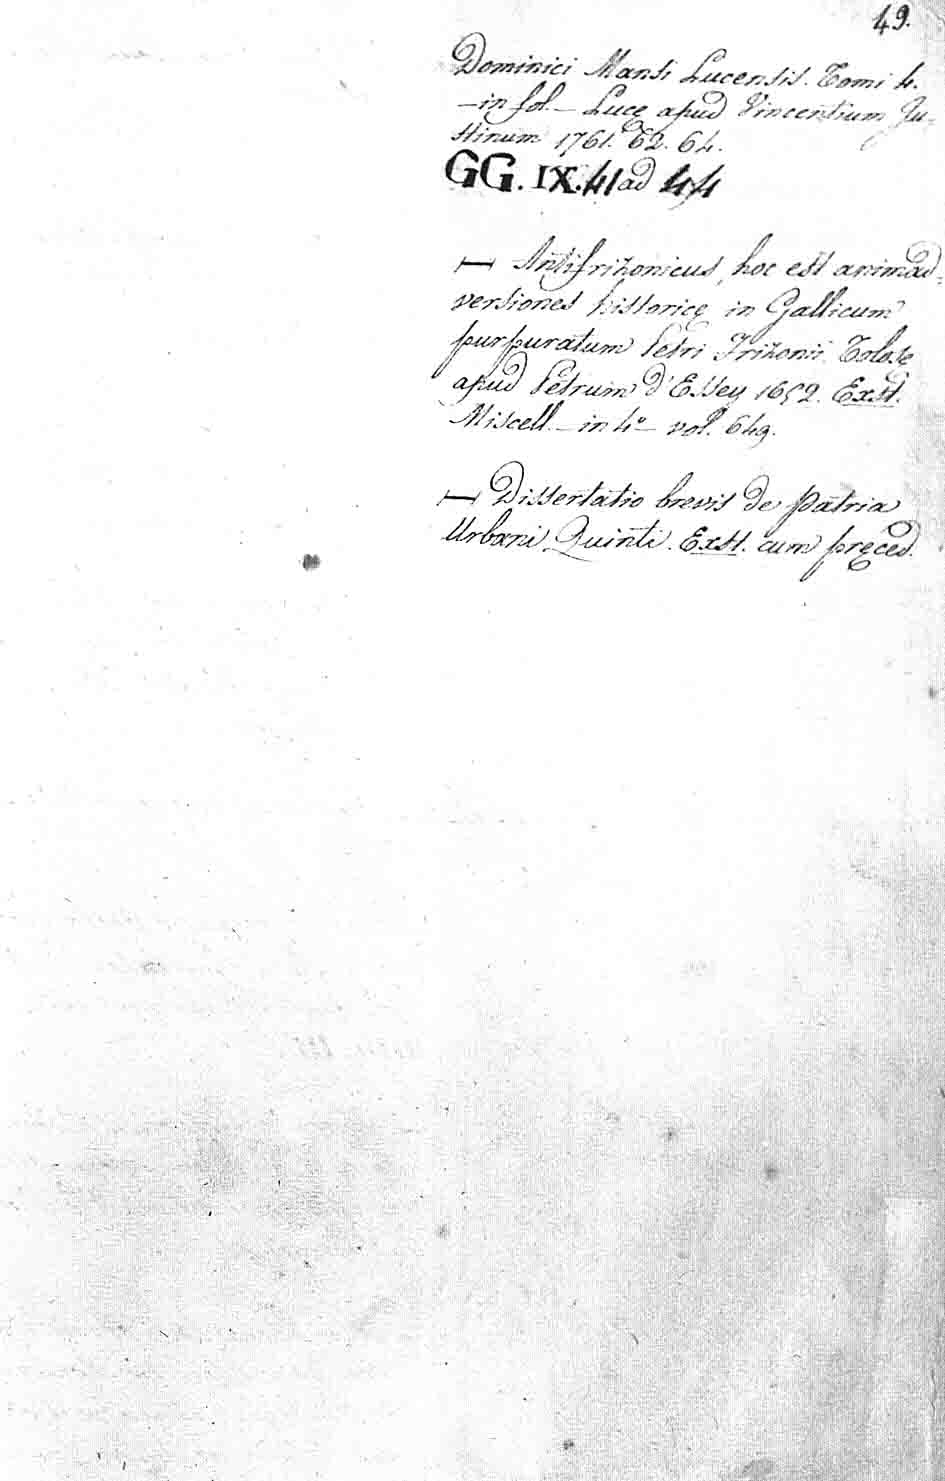 49.
Dominici Mansi Lucensis. Tomi 4.
– in fol. – Lucę apud Vincentium Ju-
stinum 1761. 62. 64.
GG. IX. 41 ad 44
— Antifrizonicus, hoc est animad-
versiones historicę in Gallicum
purpuratum Petri Frizonii. Tolosę
apud Petrum d'Essey 1652. Exst.
Miscell. – in 4º – vol. 649.
— Dissertatio brevis de Patria
Urbani Quinti. Exst. cum pręced.